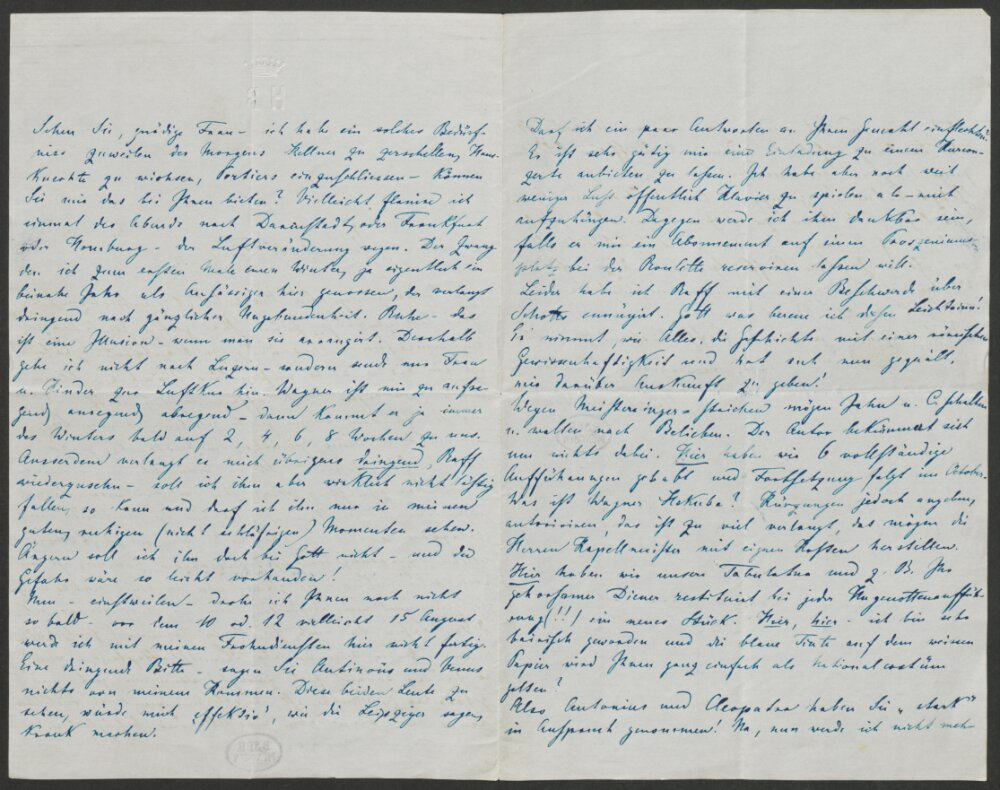 Sehen Sie, gnädige Frau – ich habe ein solches Bedürf-
niss zuweilen des Morgens Kellner zu zerschellen, Haus-
knechte zu wichsen, Portiers einzuschliessen – können
Sie mir das bei Ihnen bieten? Vielleicht flanire ich
einmal des Abends nach Darmstadt, oder Frankfurt
oder Homburg – der Luftveränderung wegen. Der Zwang
den ich zum ersten Male einen Winter, ja eigentlich ein
beinahe Jahr als Ansässiger hier genossen, der verlangt
dringend nach gänzlicher Ungebundenheit. Ruhe – das
ist eine Illusion – wenn man sie arrangirt. Desshalb
gehe ich nicht nach Luzern – sondern sende nur Frau
u. Kinder zur Luftkur hin. Wagner ist mir zu aufre-
gend, anregend, abregend – dann kommt er ja immer
des Winters bald auf 2, 4, 6, 8 Wochen zu uns.
Ausserdem verlangt es mich übrigens dringend, Raff
wiederzusehn – soll ich ihm aber wirklich nicht lästig
fallen, so kann und darf ich ihn nur in meinen
guten, ruhigen (nicht schläfrigen) Momenten sehen.
Ärgern soll ich ihn doch bei Gott nicht – und die
Gefahr wäre so leicht vorhanden!
Nun – einstweilen – drohe ich Ihnen noch nicht
so bald – vor dem 10 od. 12 vielleicht 15 August
werde ich mit meinen Frohndiensten hier nicht fertig.
Eine dringende Bitte – sagen Sie Antinöus und Venus
nichts von meinem Kommen. Diese beiden Leute zu
sehen, würde mich „effektiv", wie die Leipziger sagen,
krank machen.
Darf ich ein paar Antworten an Ihren Gemahl einflechten?
Es ist sehr gütig mir eine Einladung zu einem Kurcon-
zerte anbieten zu lassen. Ich habe aber noch weit
weniger Lust öffentlich Klavier zu spielen als – mich
aufzuhängen. Dagegen werde ich ihm dankbar sein,
falls er mir ein Abonnement auf einen Prosceniums-
platz bei der Roulette reserviren lassen will.
Leider habe ich Raff mit einer Beschwerde über
Schotts ennüyirt. Gott was bereue ich diesen Leichtsinn!
Er nimmt, wie Alles, die Geschichte mit einer
Gewissenhaftigkeit und hat sich nun gequält,
mir darüber Auskunft zu geben!
Wegen Meistersinger-Streichen mögen Jahn u. C. schalten
u. walten nach Belieben. Der Autor bekümmert sich
um nichts dabei. Hier haben wir 6 vollständige
Aufführungen gehabt und Fortsetzung folgt im October.
Was ist Wagner Hekuba? Kürzungen jedoch angeben,
autorisiren, das ist zu viel verlangt, das mögen die
Herren Kapellmeister mit eignen Kosten herstellen.
Hier haben wir unsere Tabulatur und z. B. Ihr
gehorsamer Diener restituirt bei jeder Hugenottenauffüh-
rung (!!!) ein neues Stück. Hier, hier – ich bin sehr
bairisch geworden und die blaue Tinte auf dem weissen
Papier wird Ihnen ganz einfach als Nationalcostüm
gelten?
Also Antonius und Cleopatra haben Sie „stark"
in Anspruch genommen! Na, nun werde ich nicht mehr